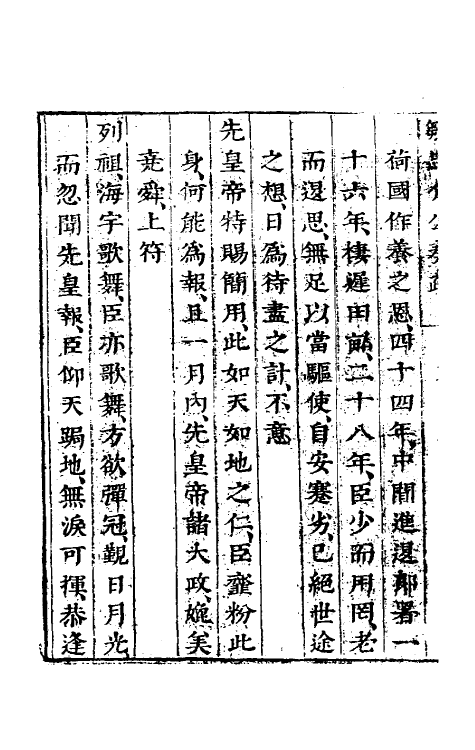 荷國作養之恩、四十四年、中間進退郎署一
十六年、棲遲田畝、二十八年、臣少而用罔、老
而退思、無足以當驅使、自安蹇劣、已絕世途
之想、日為待盡之計、不意
先皇帝特賜簡用、此如天如地之仁、臣虀粉此
身、何能為報、且一月內、先皇帝諸大政、媲美
堯舜、上符
列祖、海宇歌舞、臣亦歌舞、方欲彈冠、覲日月光
而忽聞先皇報、臣仰天跼地、無淚可揮、恭逢